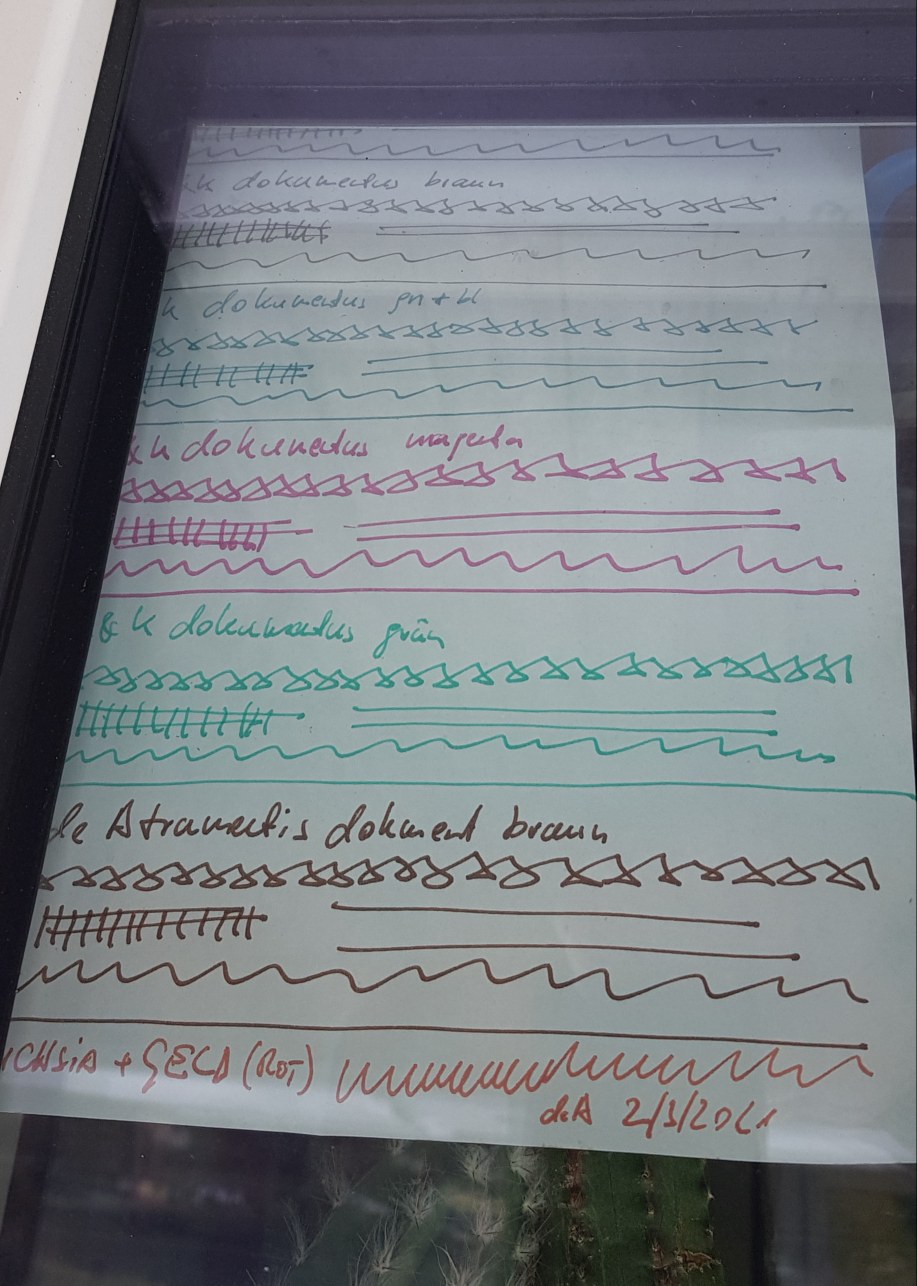 k dokumentus braun
k dokumentus gn + bl
& k dokumentus magenta
& k dokumentus grün
de Atramentis dokument braun
UCHSiA + GELB (ROT)
deA 2/3/2021